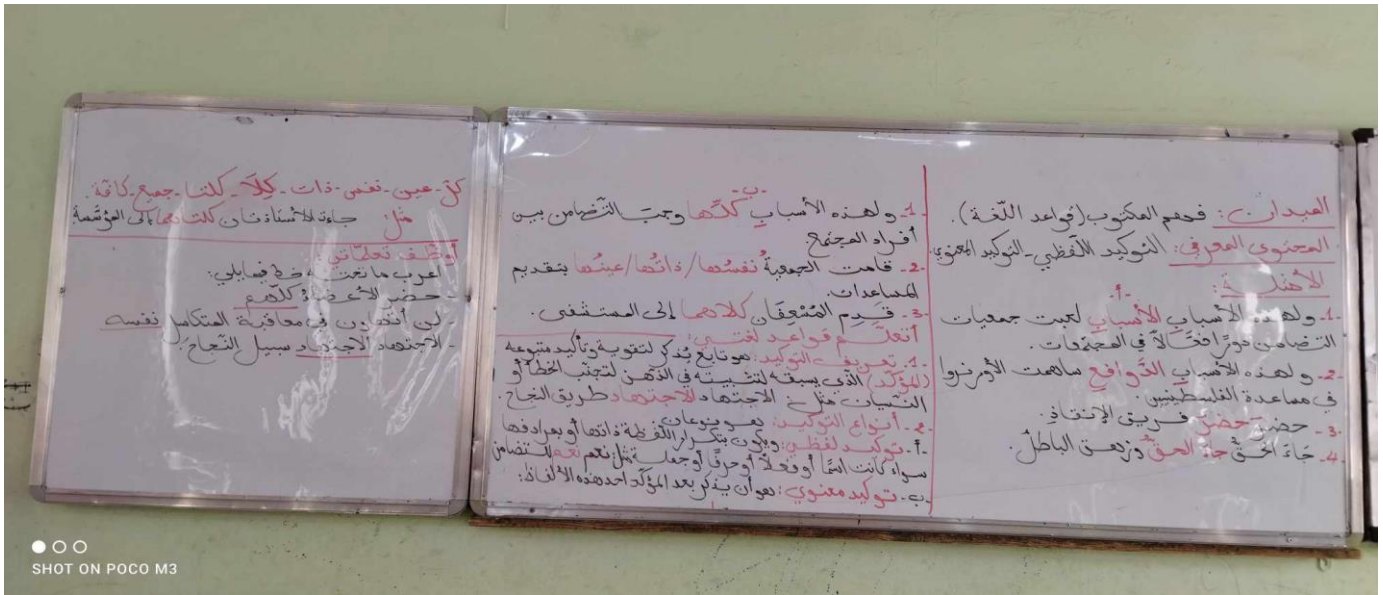 الميدان: فهم المكتوب (قواعد اللّغة).
المحتوى المعرفي: التوكيد اللّفظي - التوكيد المعنوي
الأمثلة:
-أ-
1- ولهذه الأسبابِ الأسبابِ لعبت جمعيات
التضامن دورًا فعّالاً في المجتمعات.
2- ولهذه الأسبابِ الدّوافعِ ساهمت الأونروا
في مساعدة الفلسطينيين.
3- حضرَ حضرَ فريق الإنقاذِ.
4- جَاءَ الحقُّ جاءَ الحقُّ وزهق الباطلُ.
-ب-
1- ولهذه الأسبابِ كلّها وجبَ التّضامن بين
أفراد المجتمع.
2- قامت الجمعيةُ نفسُها/ذاتُها/عينُها بتقديم
المساعدات.
3- قَدِم المُسْعِفَان كلاهما إلى المستشفى.
أتعلّم قواعد لغتي:
1- تعريف التوكيد: هو تابع يُذكر لتقوية وتأكيد متبوعه
(المؤكّد) الذي يسبقه لتثبيته في الذّهن لتجنّب الخطأ أو
النّسيان مثل: الاجتهاد الاجتهاد طريق النجاح.
2- أنواع التوكيد: هو نوعان
أ- توكيد لفظي: ويكون بتكرار اللّفظة ذاتها أو بمرادفها
سواء كانت اسمًا أو فعلاً أو حرفًا أو جملة مثل: نعم نعم للتضامن
ب- توكيد معنوي: هو أن يذكر بعد المؤكّد أحد هذه الألفاظ:
كلّ - عين - نفس - ذات - كِلَا - كلتا - جميع - كافّة.
مثل: جاءت الأستاذتان كلتاهما إلى المؤسّسة
أوظّف تعلّماتي:
أعرب ما تحته خط فيما يلي:
- حضر الأعضاءُ كلّهم
- لن أتهاون في معاقبة المتكاسلِ نفسه
- الاجتهاد الاجتهاد سبيل النّجاح.
SHOT ON POCO M3